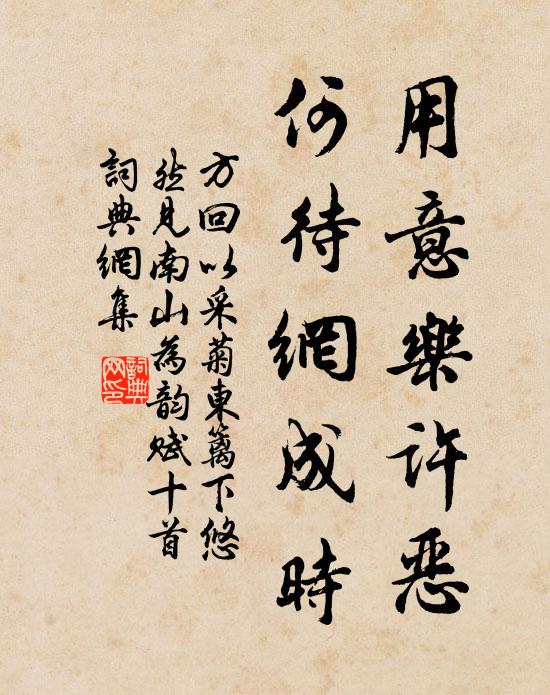 用意樂許惡
何待網成時
方回以采菊東籬下悠
然見南山為韵賦十首
詞典網集
詞典网印